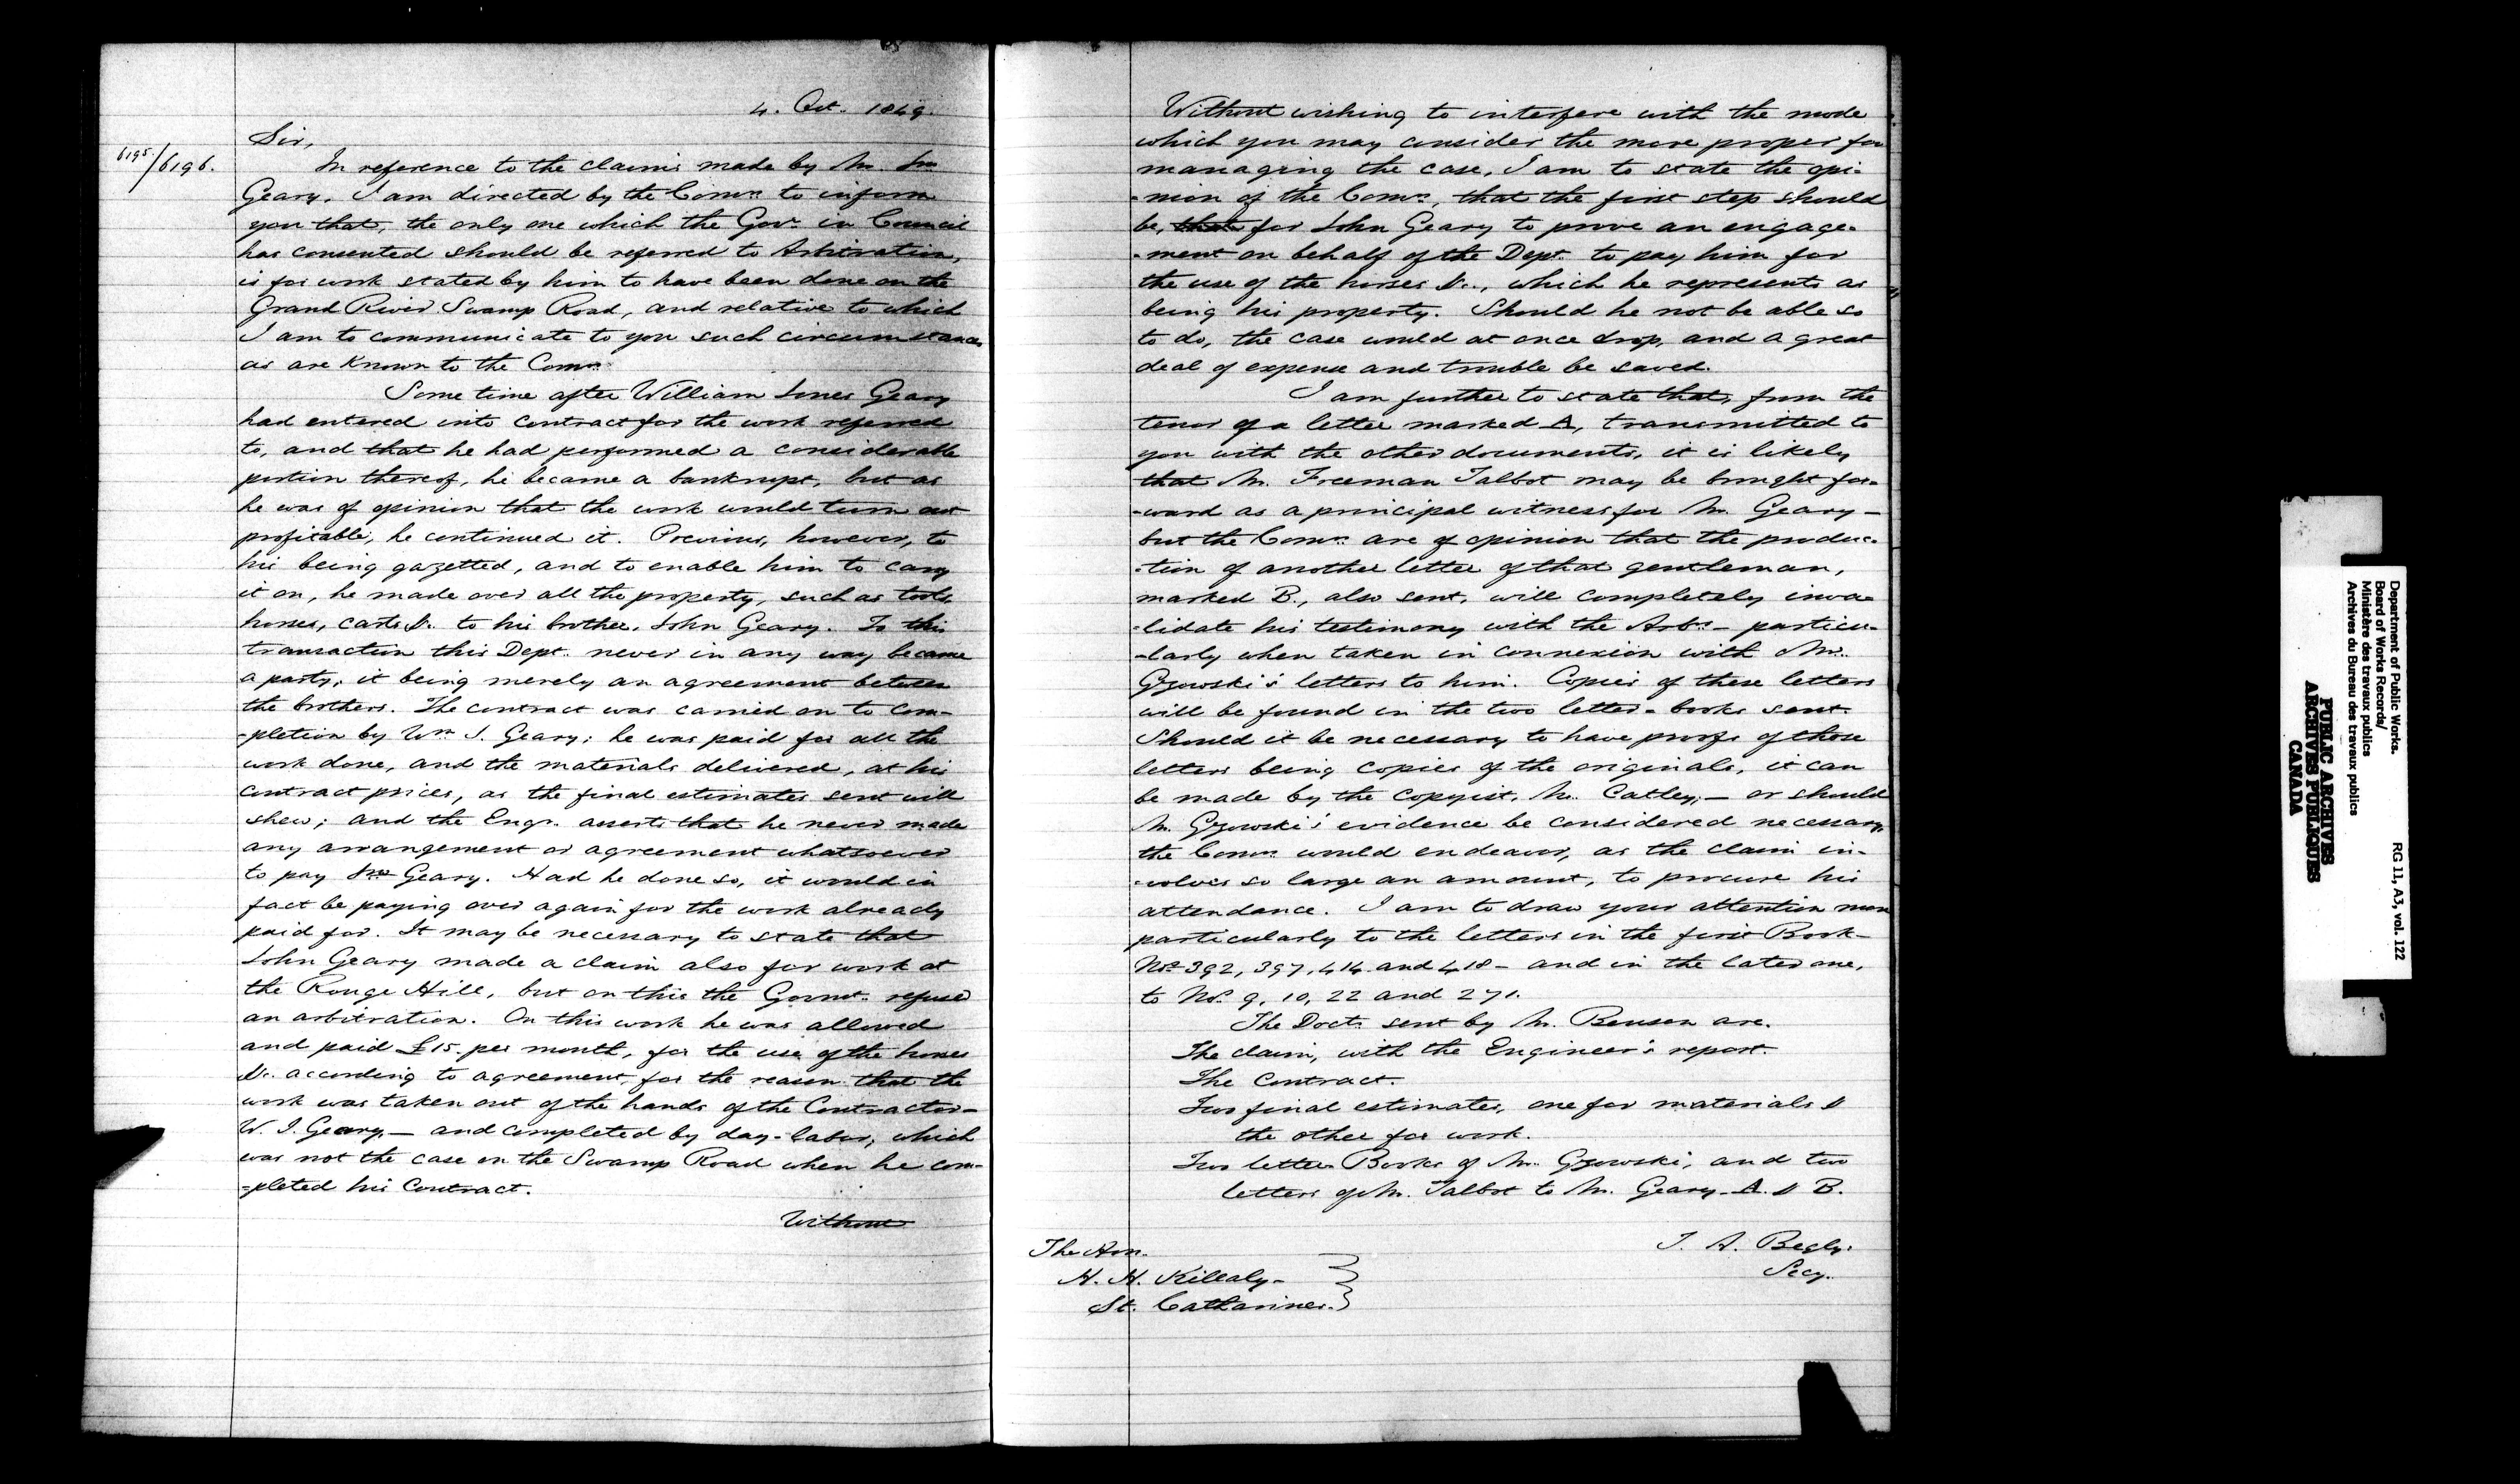 4. Oct. 1849.
6195/6196.
Sir,
In reference to the claims made by Mr. Jno
Geary, I am directed by the Comrs. to inform
you that, the only one which the Govr. in Council
has consented should be referred to Arbitration,
is for work stated by him to have been done on the
Grand River Swamp Road, and relative to which
I am to communicate to you such circumstances
as are known to the Comrs.
Some time after William Jones Geary
had entered into contract for the work referred
to, and that he had performed a considerable
portion thereof, he became a bankrupt, but as
he was of opinion that the work would turn out
profitable, he continued it. Previous, however, to
his being gazetted, and to enable him to carry
it on, he made over all the property, such as tools,
horses, carts &c. to his brother, John Geary. To this
transaction this Dept. never in any way became
a party, it being merely an agreement between
the brothers. The contract was carried on to com-
-pletion by Wm. J. Geary; he was paid for all the
work done, and the materials delivered, at his
contract prices, as the final estimates sent will
shew; and the Engr. asserts that he never made
any arrangement or agreement whatsoever
to pay Jno Geary. Had he done so, it would in
fact be paying over again for the work already
paid for. It may be necessary to state that
John Geary made a claim also for work at
the Rouge Hill, but on this the Govmt. refuse
an arbitration. On this work he was allowed
and paid £15. per month, for the use of the horses
&c. according to agreement, for the reason that the
work was taken out of the hands of the Contractor-
W. J. Geary,- and completed by day-labor, which
was not the case on the Swamp Road when he com-
-pleted his Contract.
Without
Without wishing to interfere with the mode
which you may consider the more proper for
managing the case, I am to state the opi-
-nion of the Comrs, that the first step should
be, that for John Geary to prove an engage-
-ment on behalf of the Dept. to pay him for
the use of the horses &c., which he represents as
being his property. Should he not be able so
to do, the case would at once drop, and a great
deal of expense and trouble be saved.
I am further to state that, from the
tenor of a letter marked A, transmitted to
you with the other documents, it is likely
that Mr. Freeman Talbot may be brought for-
-ward as a principal witness for Mr. Geary-
but the Comrs. are of opinion that the produc-
-tion of another letter of that gentleman,
marked B., also sent, will completely inva-
-lidate his testimony with the Arbrs- particu-
-larly when taken in connexion with Mr.
Gzowski's letters to him. Copies of these letters
will be found in the two letter-books sent.
Should it be necessary to have proofs of those
letters being copies of the originals, it can
be made by the copyist, Mr. Catley,- or should
Mr. Gzowski's evidence be considered necessary,
the Comrs. would endeavor, as the claim in-
-volves so large an amount, to procure his
attendance. I am to draw your attention more
particularly to the letters in the first Book-
Nos. 392, 397, 414 and 418- and in the later one,
to Nos. 9, 10, 22 and 271.
The Docts. sent by Mr. Benson are.
The claim, with the Engineer's report.
The Contract.
Two final estimates, one for materials &
the other for work.
Two letter-Books of Mr. Gzowski, and two
letters of Mr. Talbot to Mr. Geary- A. & B.
T. A. Begly.
Secy.
The Hon.
H. H. Killaly-
St. Catharines.
Department of Public Works.
Board of Works Records/
Ministère des travaux publics
Archives du Bureau des travaux publics
RG 11, A3, vol. 122
PUBLIC ARCHIVES
ARCHIVES PUBLIQUES
CANADA